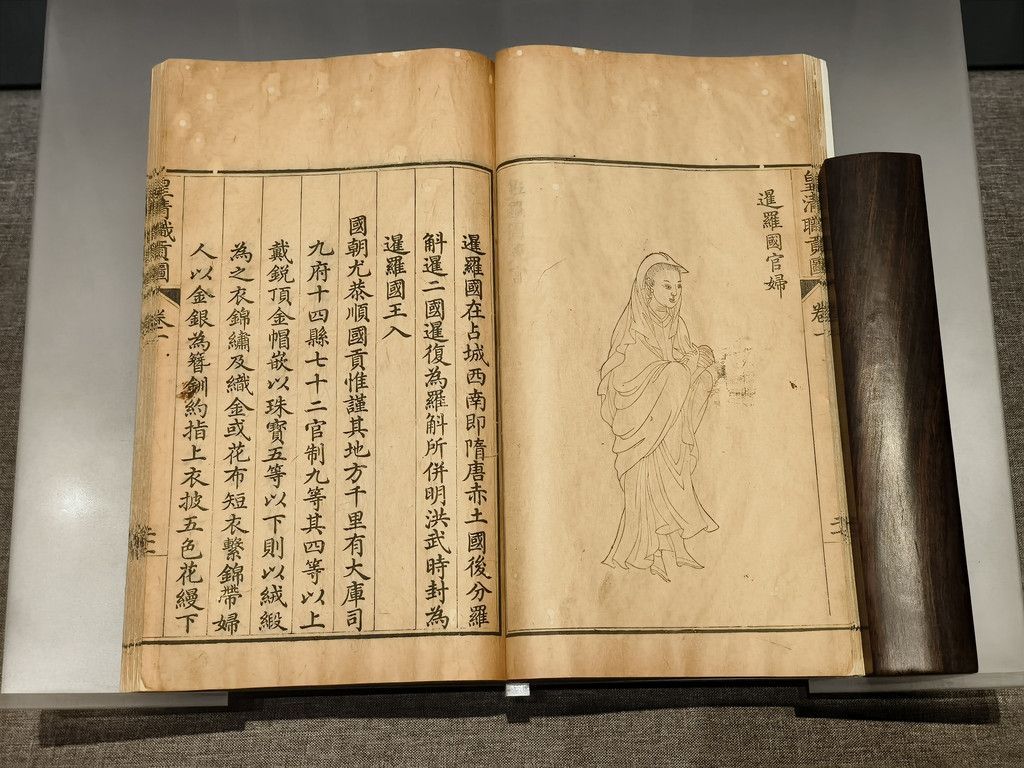 皇清職貢圖
卷一
暹羅國官婦
暹羅國在占城西南即隋唐赤土國後分羅
斛暹二國暹復為羅斛所併明洪武時封為
暹羅國王入
國朝尤恭順國貢惟謹其地方千里有大庫司
九府十四縣七十二官制九等其四等以上
戴銳頂金帽嵌以珠寶五等以下則以絨緞
為之衣錦繡及織金或花布短衣繫錦帶婦
人以金銀為簪釧約指上衣披五色花縵下
皇清職貢圖
卷一